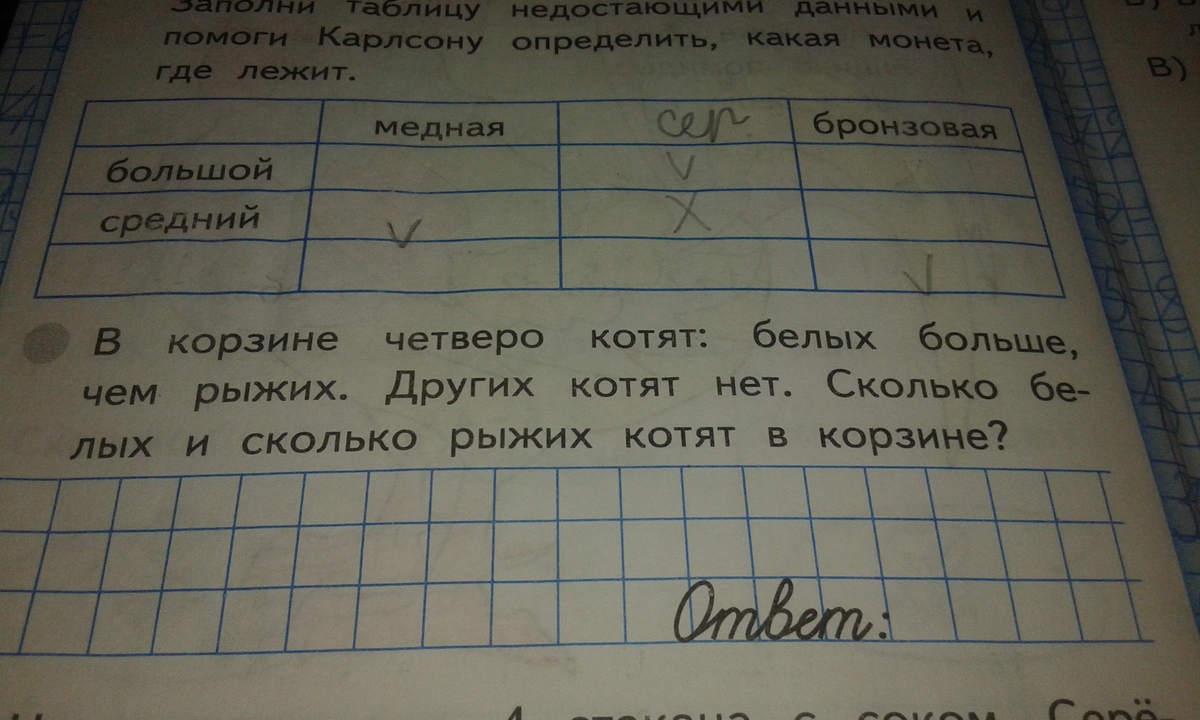 Заполни таблицу недостающими данными и
помоги Карлсону определить, какая монета,
где лежит.
медная сер. бронзовая
большой V
средний V X
V
В корзине четверо котят: белых больше,
чем рыжих. Других котят нет. Сколько бе-
лых и сколько рыжих котят в корзине?
Ответ:
4 стакана с соком. Серё-
В)